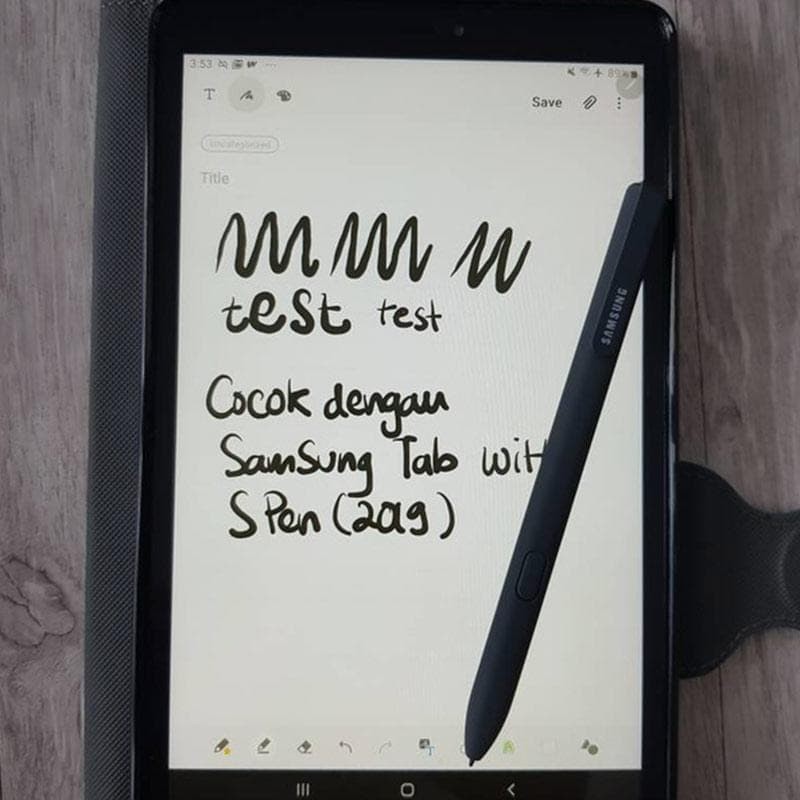 3:53
89%
T
Save
Uncategorized
Title
test test
Cocok dengan
Samsung Tab with
S Pen (2019)
SAMSUNG